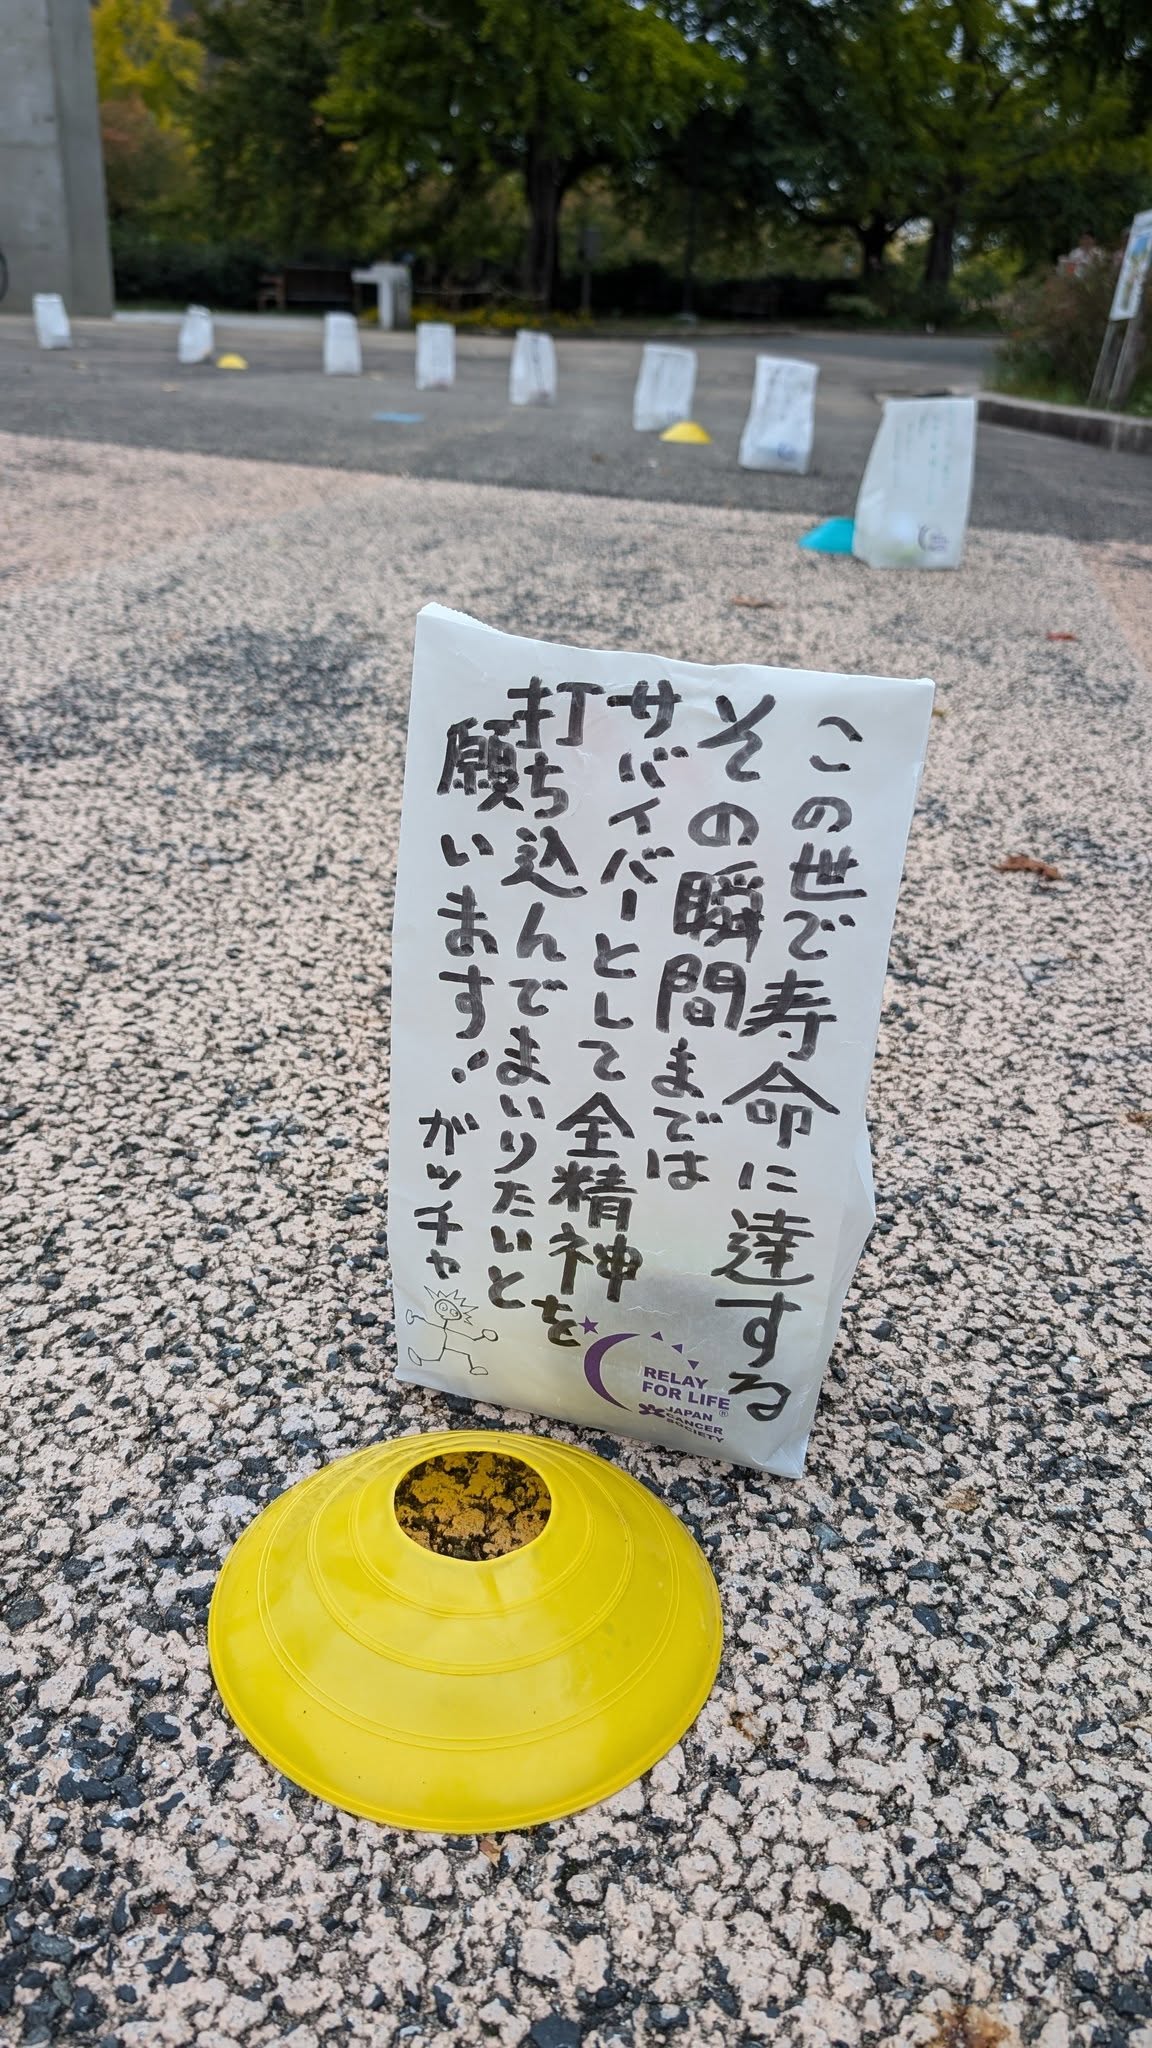 この世で寿命に達する
その瞬間までは
サバイバーとして全精神を
打ち込んでまいりたいと
願います! ガッチャ
RELAY
FOR LIFE®
JAPAN
CANCER
SOCIETY